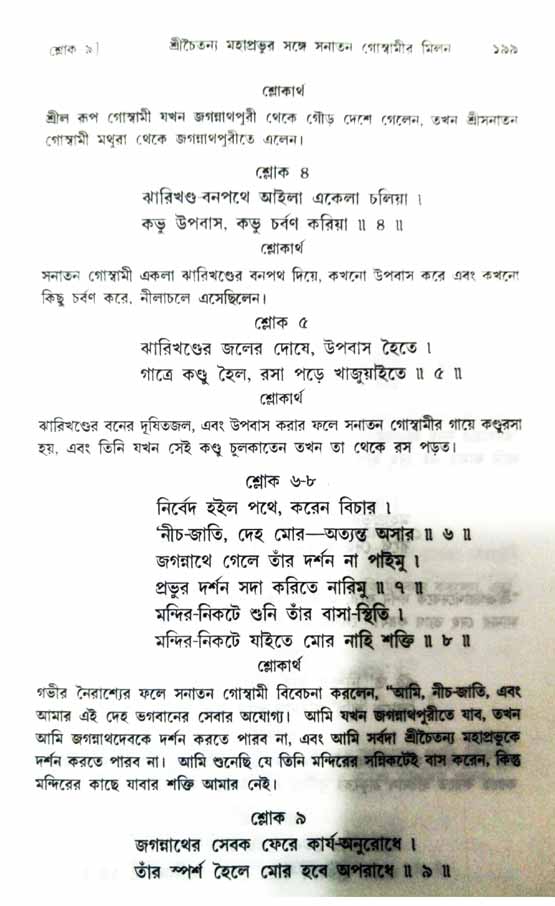 শ্লোক ৯] শ্রীচৈতন্য মহাপ্রভুর সঙ্গে সনাতন গোস্বামীর মিলন ১৯৯
শ্লোকার্থ
শ্রীল রূপ গোস্বামী যখন জগন্নাথপুরী থেকে গৌড় দেশে গেলেন, তখন শ্রীসনাতন
গোস্বামী মথুরা থেকে জগন্নাথপুরীতে এলেন।
শ্লোক ৪
ঝারিখণ্ড-বনপথে আইলা একেলা চলিয়া ।
কভু উপবাস, কভু চর্বণ করিয়া ॥ ৪ ॥
শ্লোকার্থ
সনাতন গোস্বামী একলা ঝারিখণ্ডের বনপথ দিয়ে, কখনো উপবাস করে এবং কখনো
কিছু চর্বণ করে, নীলাচলে এসেছিলেন।
শ্লোক ৫
ঝারিখণ্ডের জলের দোষে, উপবাস হৈতে ।
গাত্রে কণ্ডু হৈল, রসা পড়ে খাজুয়াইতে ॥ ৫ ॥
শ্লোকার্থ
ঝারিখণ্ডের বনের দূষিতজল, এবং উপবাস করার ফলে সনাতন গোস্বামীর গায়ে কণ্ডুরসা
হয়, এবং তিনি যখন সেই কণ্ডু চুলকাতেন তখন তা থেকে রস পড়ত।
শ্লোক ৬-৮
নির্বেদ হইল পথে, করেন বিচার ।
'নীচ-জাতি, দেহ মোর—অত্যন্ত অসার ॥ ৬ ॥
জগন্নাথে গেলে তাঁর দর্শন না পাইমু ।
প্রভুর দর্শন সদা করিতে নারিমু ॥ ৭ ॥
মন্দির-নিকটে শুনি তাঁর বাসা-স্থিতি ।
মন্দির-নিকটে যাইতে মোর নাহি শক্তি ॥ ৮ ॥
শ্লোকার্থ
গভীর নৈরাশ্যের ফলে সনাতন গোস্বামী বিবেচনা করলেন, "আমি, নীচ-জাতি, এবং
আমার এই দেহ ভগবানের সেবার অযোগ্য। আমি যখন জগন্নাথপুরীতে যাব, তখন
আমি জগন্নাথদেবকে দর্শন করতে পারব না, এবং আমি সর্বদা শ্রীচৈতন্য মহাপ্রভুকে
দর্শন করতে পারব না। আমি শুনেছি যে তিনি মন্দিরের সন্নিকটেই বাস করেন, কিন্তু
মন্দিরের কাছে যাবার শক্তি আমার নেই।
শ্লোক ৯
জগন্নাথের সেবক ফেরে কার্য-অনুরোধে ।
তাঁর স্পর্শ হৈলে মোর হবে অপরাধে ॥ ৯ ॥